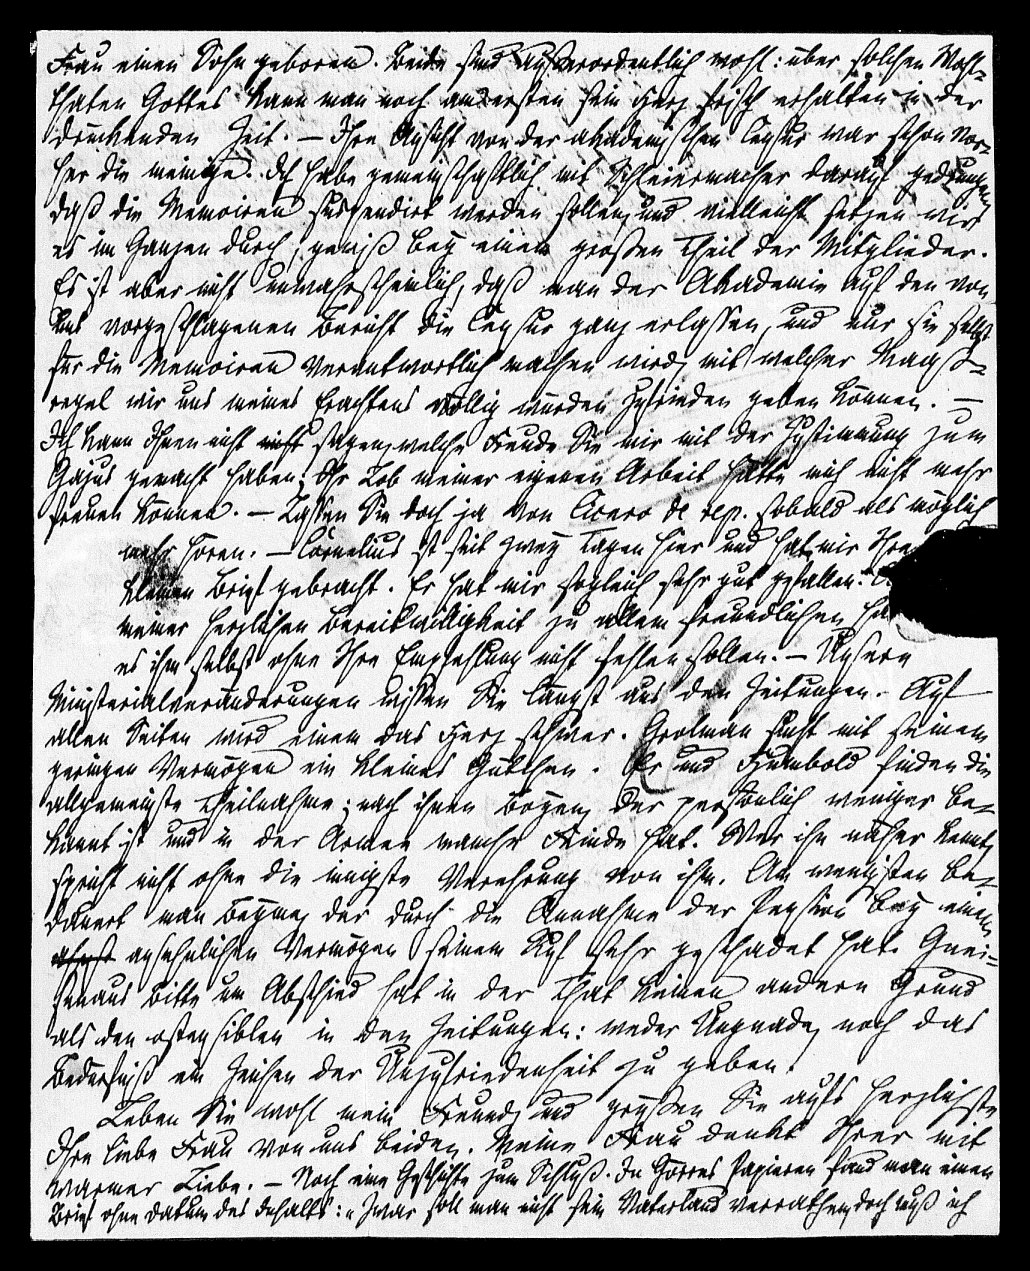 Frau einen Sohn geboren. Beide sind außerordentlich wohl: über solchen Wohl-
thaten Gottes kann man noch am ersten sein Herz frisch erhalten in der
drückenden Zeit. — Ihre Ansicht von der akademischen Censur war schon vor-
her die meinige. Ich habe gemeinschaftlich mit Schleiermacher darauf gedrungen
daß die Memoiren suspendirt werden sollen, und vielleicht setzen wir
es im Ganzen durch, gewiß bey einem großen Theil der Mitglieder.
Es ist aber nicht unwahrscheinlich, daß man der Akademie auf den von
uns vorgeschlagenen Bericht die Censur ganz erlassen, und nur sie selbst
für die Memoiren verantwortlich machen wird, mit welcher Maaß-
regel wir uns meines Erachtens völlig würden zufrieden geben können. —
Ich kann Ihnen nicht sagen, welche Freude Sie mir mit der Zustimmung zum
Gajus gemacht haben; Ihr Lob meiner eigenen Arbeit hätte mich nicht mehr
freuen können. — Lassen Sie doch ja von Cicero de rep. sobald als möglich
mehr hören. — Cornelius ist seit zwey Tagen hier und hat mir Ihre
kleinen Brief gebracht. Er hat mir sogleich sehr gut gefallen.
meiner herzlichen Bereitwilligkeit zu allem freundlichen
es ihm selbst ohne Ihre Empfehlung nicht fehlen sollen. — Unsern
Ministerialveränderungen wissen Sie längst aus den Zeitungen. Auf
allen Seiten wird einem das Herz schwer. Grolman sucht mit seinem
geringen Vermögen ein kleines Gütchen. Er und Humbold finden die
allgemeinste Theilnahme; nach ihnen Boyen, der persönlich weniger be-
kannt ist und in der Armee manche Feinde hat. Wer ihn näher kennt,
spricht nicht ohne die innigste Verehrung von ihm. Am wenigsten be-
dauert man Beyme, der durch die Annahme der Pension bey einem
ansehnlichen Vermögen seinem Ruf sehr geschadet hat. Gnei-
senaus Bitte um Abschied hat in der That keinen andern Grund
als den ostensiblen in den Zeitungen: weder Ungnade, noch das
Bedürfniß ein Zeichen der Unzufriedenheit zu geben.
Leben Sie wohl mein Freund, und grüßen Sie aufs herzlichste
Ihre liebe Frau von uns beiden. Meine Frau denkt Ihrer mit
warmer Liebe. — Noch eine Geschichte zum Schluß. In Görres Papieren fand man einen
Brief ohne Datum des Inhalts: „Zwar soll man nicht sein Vaterland verrathen, doch muß ich